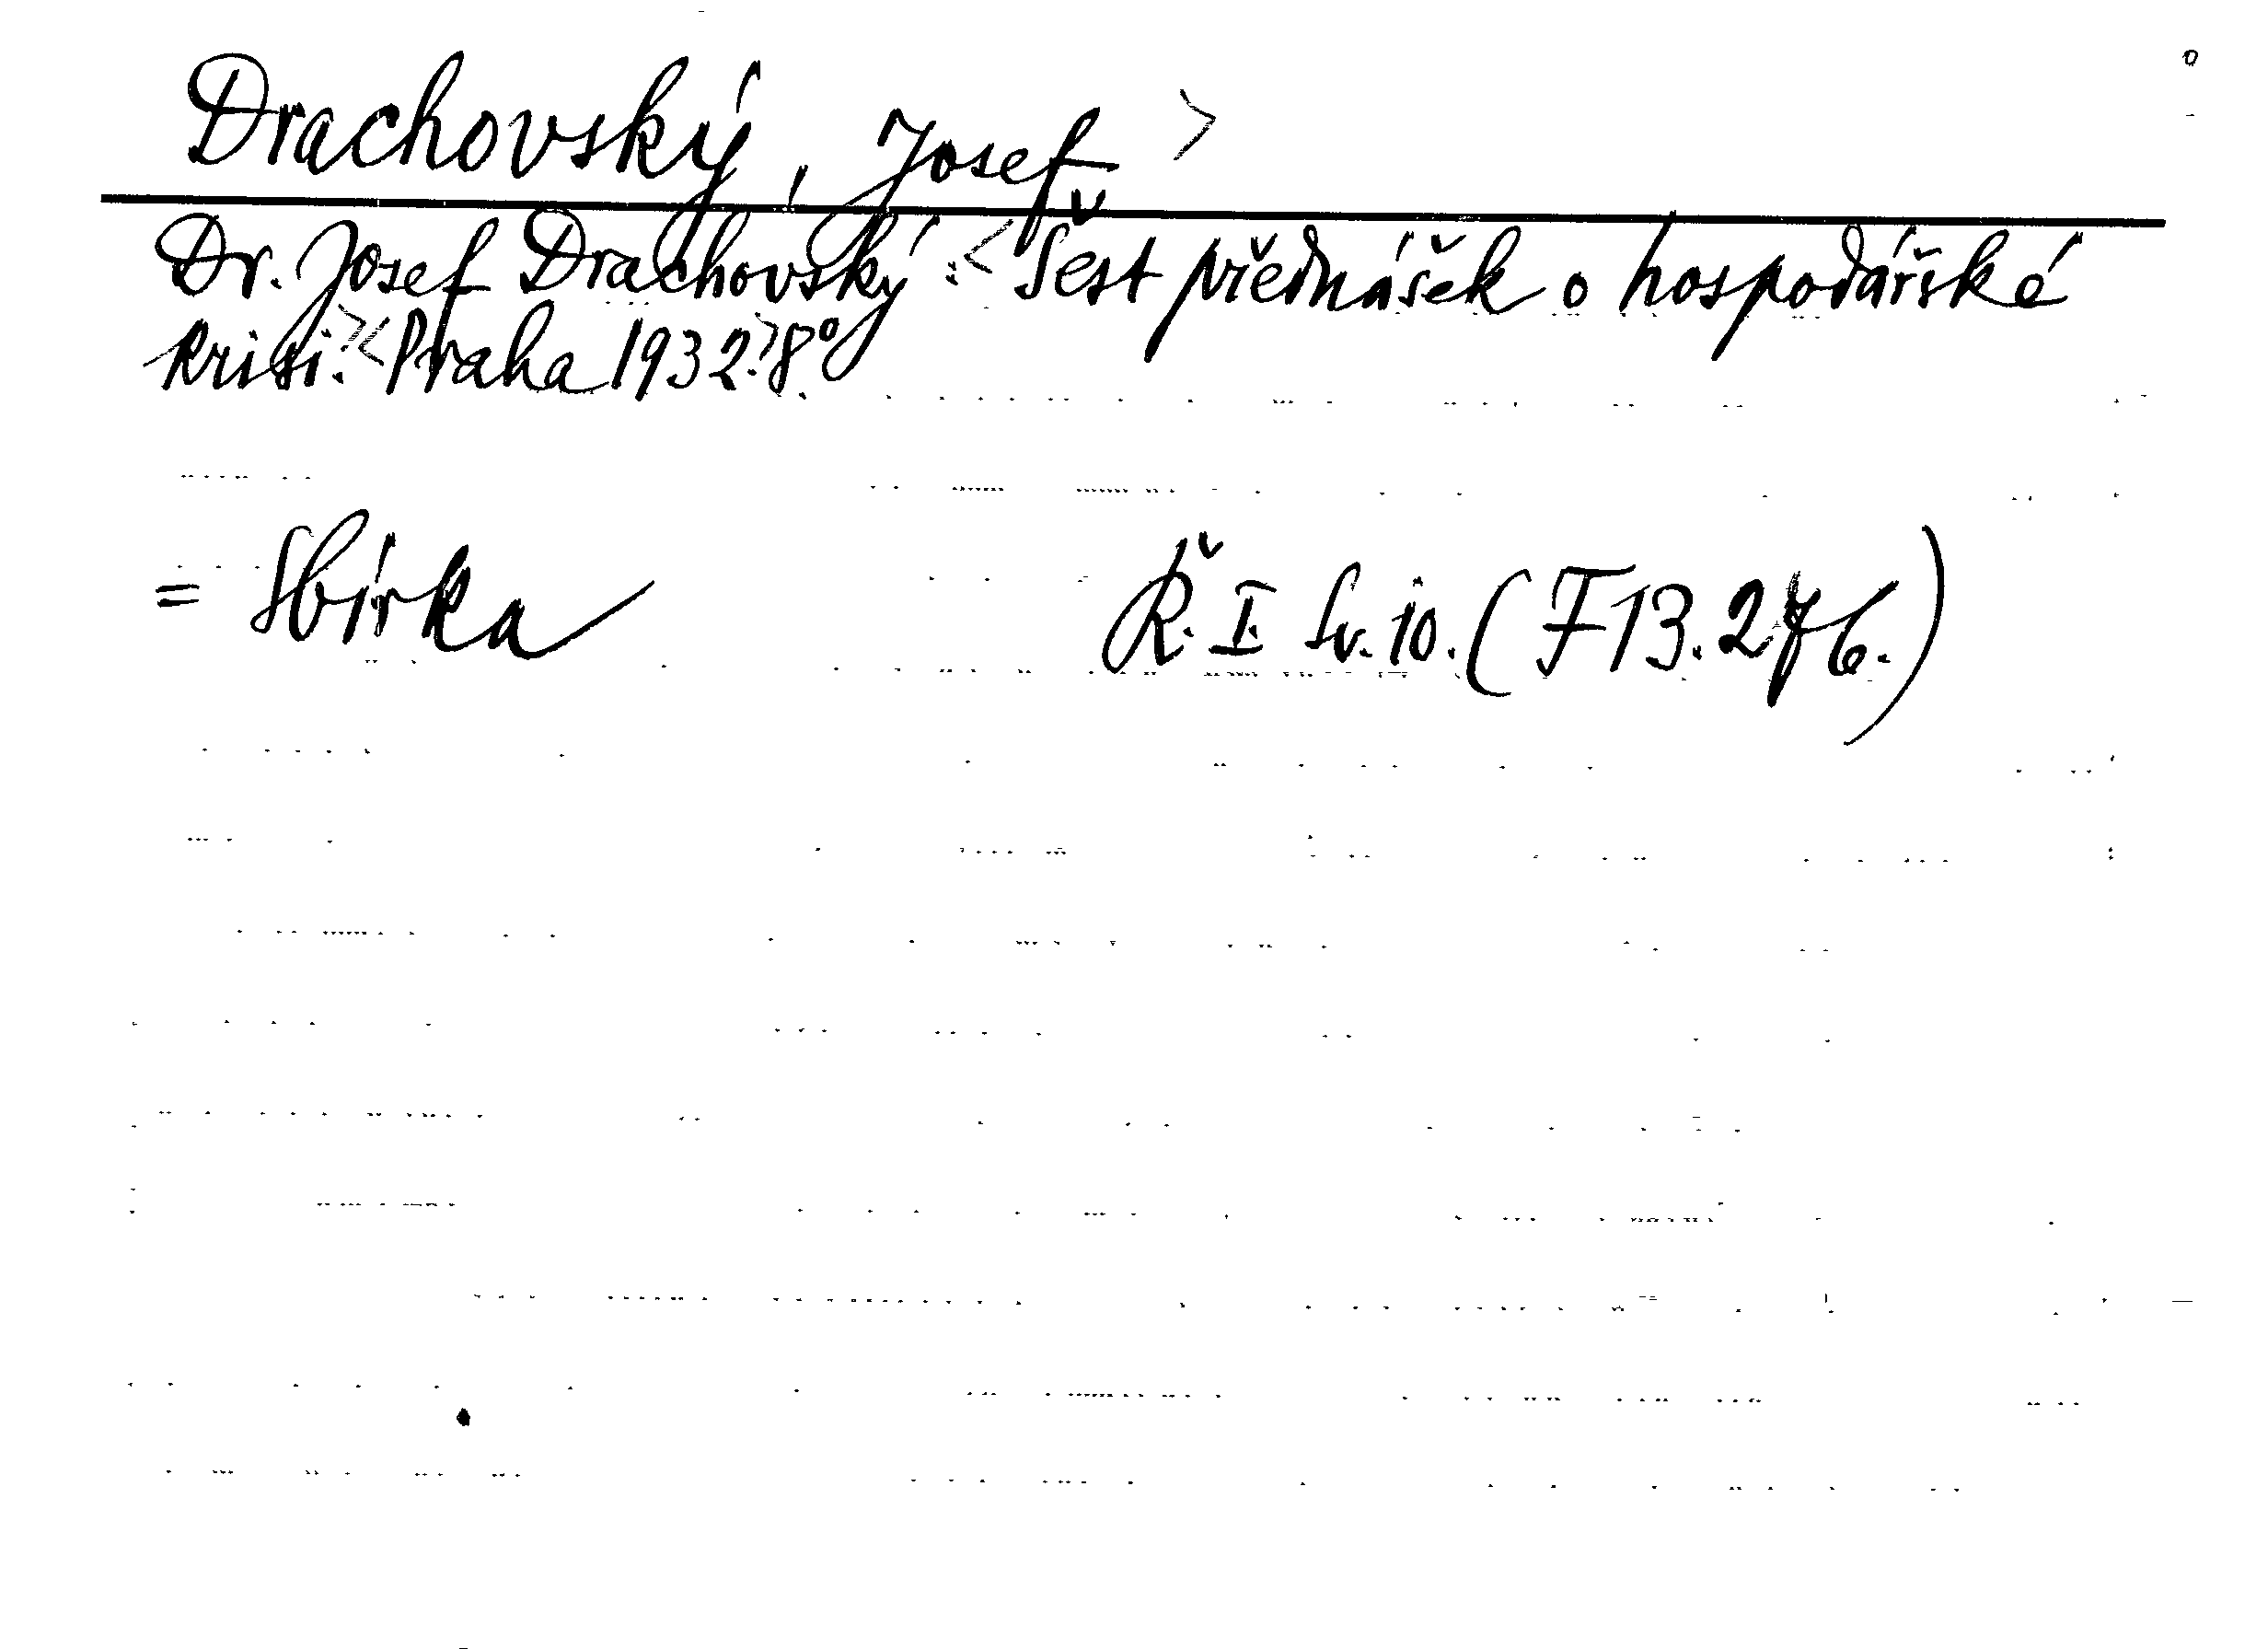 Drachovský, Josef >
Dr. Josef Drachovský: < Šest přednášek o hospodářské
krisi. > < Praha 1932. > 8°.
= Sbírka Ř. I. Sv. 10. (F 13.276.)